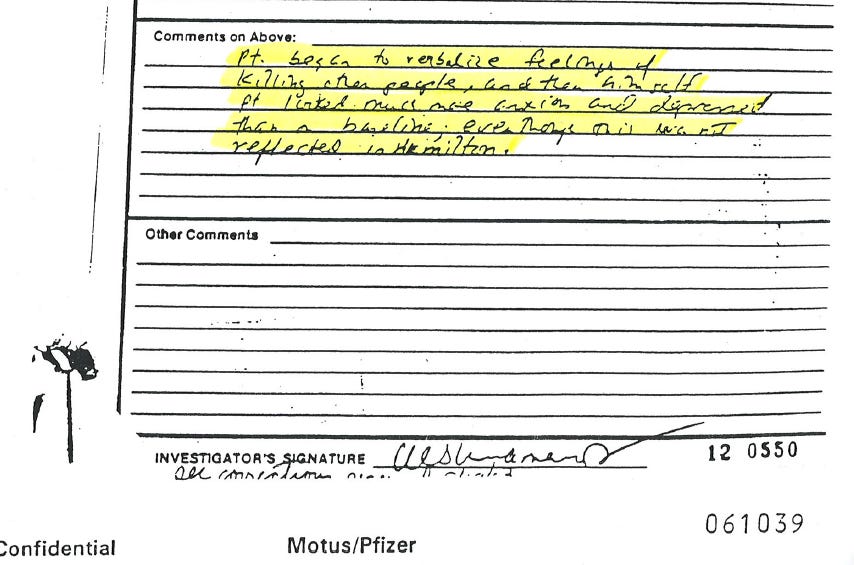 Comments on Above:
pt. began to verbalize feelings of
killing other people, and then himself
pt looked much more anxious and depressed
than on baseline, eventhough this was not
reflected in Hamilton.
Other Comments
INVESTIGATOR'S SIGNATURE
12 0550
See
061039
Confidential Motus/Pfizer